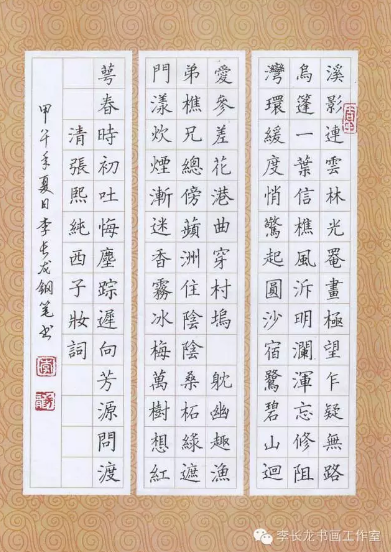 溪影連雲林光罨畫極望乍疑無路
烏篷一葉信樵風泝明瀾渾忘修阻
灣環緩度悄驚起圓沙宿鷺碧山迴
愛參差花港曲穿村塢 躭幽趣漁
弟樵兄總傍蘋洲住陰陰桑柘綠遮
門漾炊煙漸迷香霧冰梅萬樹想紅
萼春時初吐悔塵踪遲向芳源問渡
清張熙純西子妝詞
甲午年夏日李长龙钢笔书
李长龙书画工作室